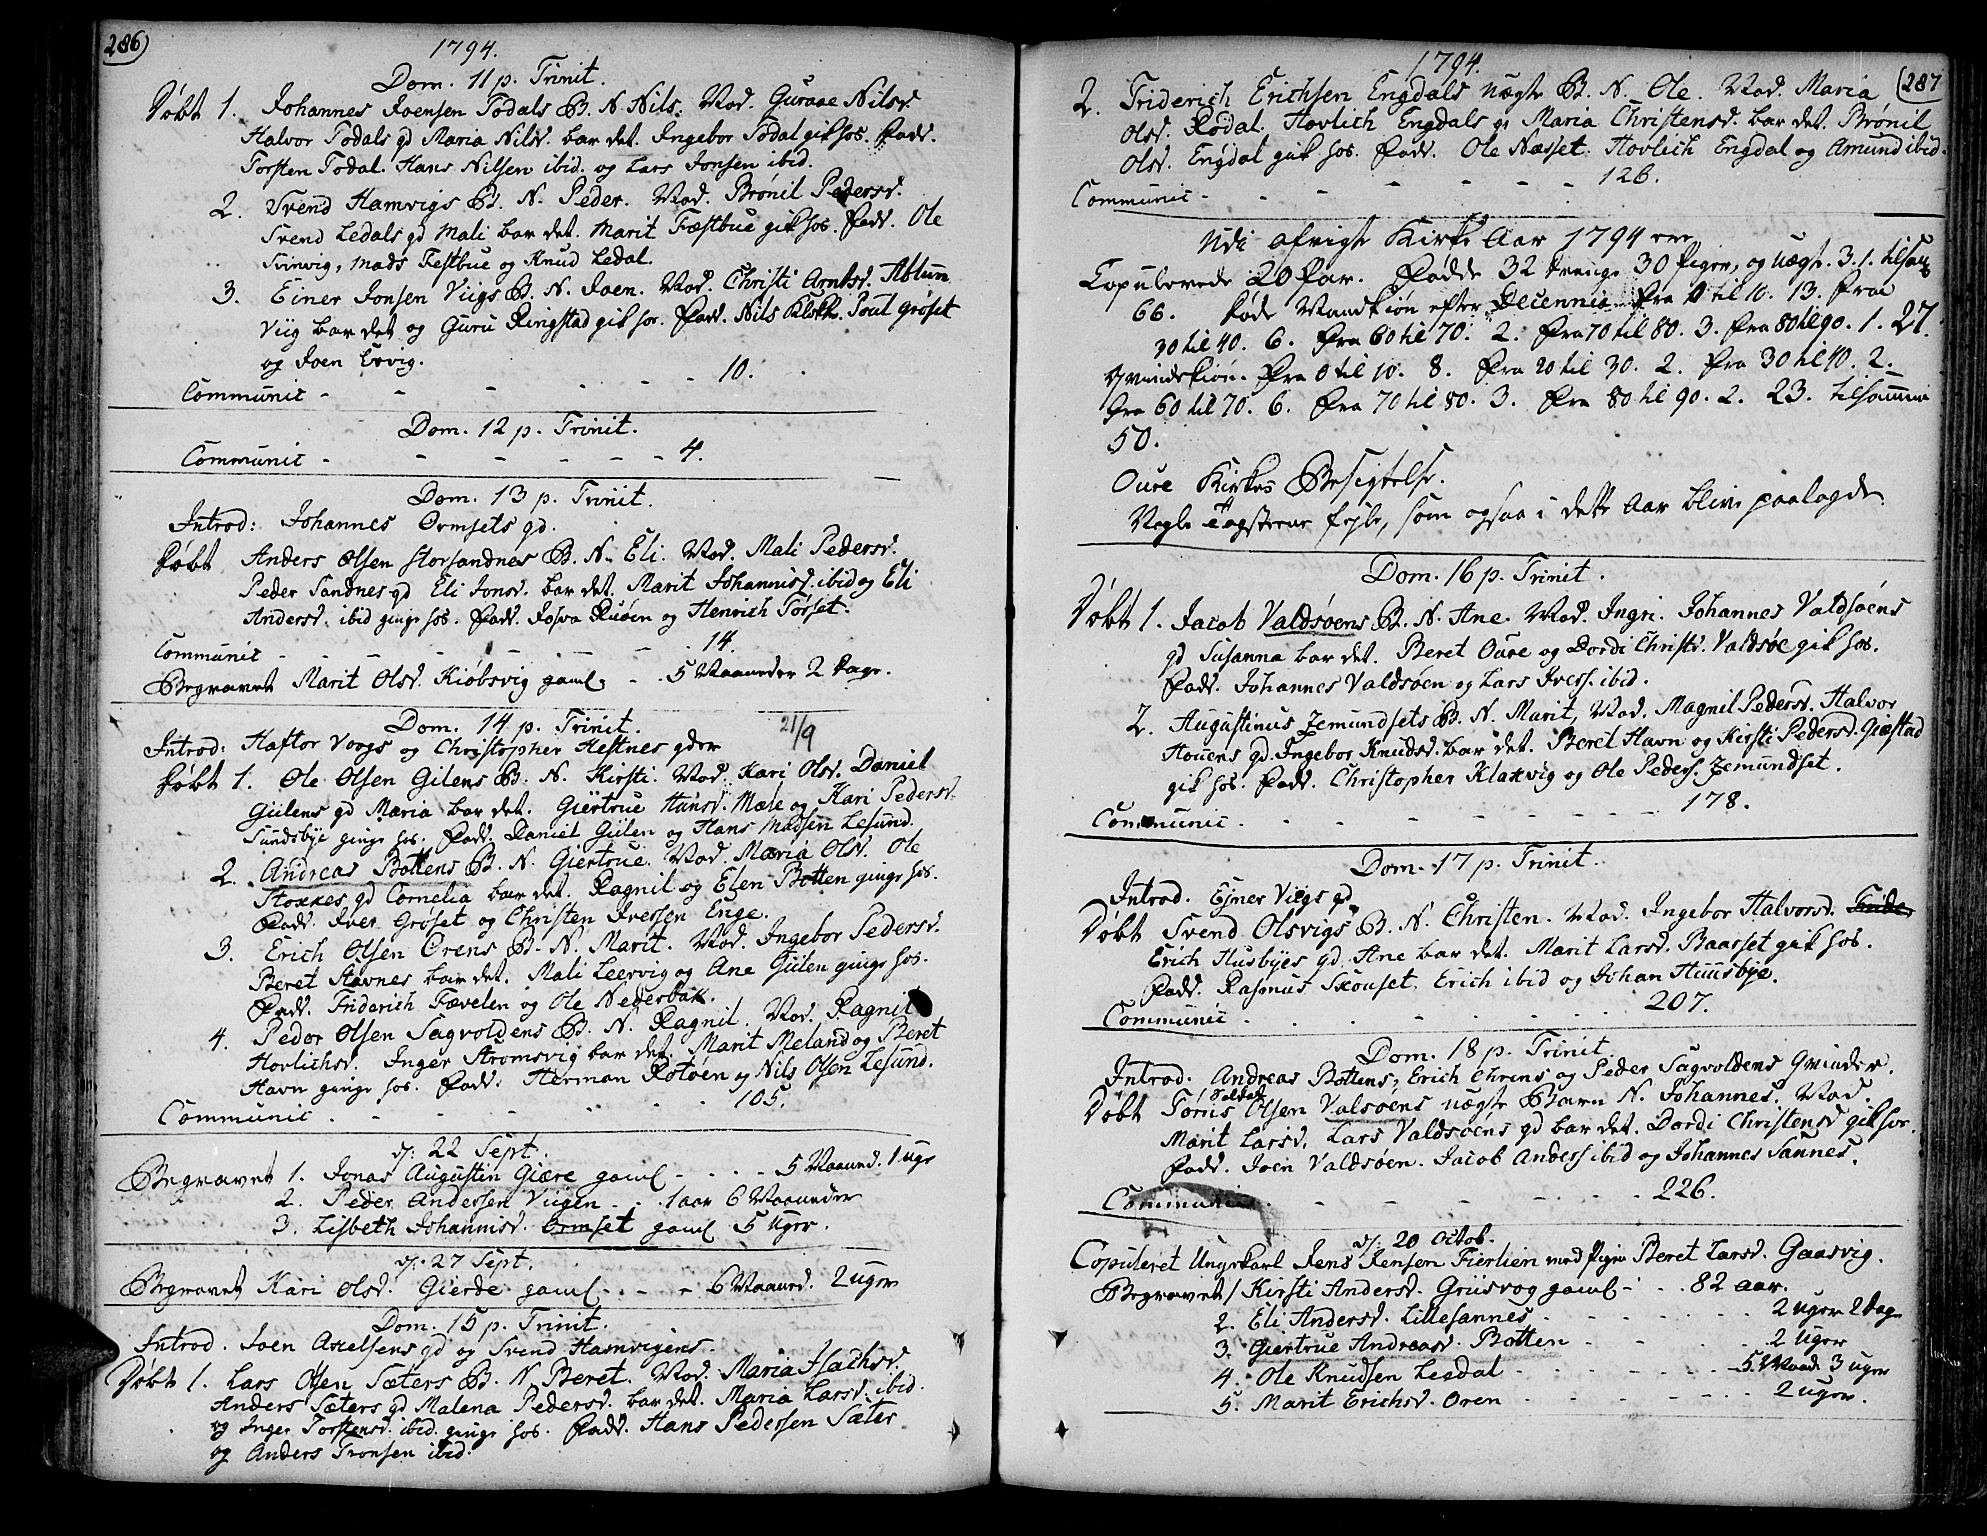 286)
1794.
Dom. 11 p. Trinit.
Døbt 1. Johannes Joensen Todals B. N. Nils. Mod. Guraae Nilsd.
Halvor Todals gd Maria Nilsd. bar det. Ingebor Todal gik hos. Fadd.
Torsten Todal. Hans Nilsen ibid. og Lars Jonsen ibid.
2. Svend Hamvigs B. N. Peder. Mod. Brønil Pedersd.
Svend Ledals gd Mali bar det. Marit Fæstbue gik hos. Fadd. Ole
Svinvig, Mads Festbue og Knud Ledal.
3. Einer Jonsen Viigs B. N. Joen. Mod. Christi Arntsd. Ablum
Viig bar det og Guru Ringstad gik hos. Fadd. Nils Klokk. Poul Grøset
og Joen Ervig.
Communic - - - - - - 10.
Dom. 12 p. Trinit.
Communic - - - - - - 4.
Dom. 13 p. Trinit.
Introd: Johannes Ormsets gd.
Døbt Anders Olsen Storsandnes B. N. Eli. Mod. Mali Pedersd.
Peder Sandnes gd Eli Jonsd. bar det. Marit Johannisd. ibid og Eli
Andersd. ibid ginge hos. Fadd. Josva Ruøen og Henrich Tørset.
Communic - - - - - - 14.
Begravet Marit Olsd. Kiøbsvig gaml - - 5 Maaneder 2 Dage.
Dom. 14 p. Trinit. 21/9
Introd: Haftor Vaags og Christopher Hestnes gder
Døbt 1. Ole Olsen Gilens B. N. Kirsti. Mod. Kari Olsd. Daniel
Giilens gd Maria bar det. Giertrue Hansd. Mæle og Kari Pedersd.
Sundsbye ginge hos. Fadd. Daniel Giilen og Hans Madsen Lesund.
2. Andreas Bottens B. N. Giertrue. Mod. Maria Olsd. Ole
Stokkes gd Cornelia bar det. Ragnil og Elen Botten ginge hos.
Fadd. Iver Grøset og Christen Iversen Enge.
3. Erich Olsen Orens B. N. Marit. Mod. Ingebor Pedersd.
Beret Stavnes bar det. Mali Leervig og Ane Giilen ginge hos.
Fadd. Friderich Fævelen og Ole Nedersbak.
4. Peder Olsen Sagvoldens B. N. Ragnil. Mod. Ragnil
Hovlichsd. Inger Strømsvig bar det. Marit Meland og Beret
Havn ginge hos. Fadd. Herman Rotøen og Nils Olsen Lesund.
Communic . - - - - - 105.
d: 22 Sept.
Begravet 1. Jonas Augustin Giære gaml - - - - 5 Maaned. 1 uge
2. Peder Andersen Viigen - - 1 aar 6 Maaneder
3. Lisbeth Johannisd. Ormset gaml 5 uger.
d: 27 Sept.
Begravet Kari Olsd. Gierde gaml - - - - 6 Maaned. 2 uger
Dom. 15 p. Trinit.
Introd. Joen Axelsens gd og Svend Hamvigens.
Døbt 1. Lars Olsen Sæters B. N. Beret. Mod. Maria Isachsd.
Anders Sæters gd Malena Pedersd. bar det. Maria Larsd. ibid.
og Inger Torstensd. ibid ginge hos. Fadd. Hans Pedersen Sæter
og Anders Tronsen ibid.
1794.
(287
2. Friderich Erichsen Engdals uægte B. N. Ole. Mod. Maria
Olsd. Rødal. Hovlich Engdals gd Maria Christensd. bar det. Brønil
Olsd. Engdal gik hos. Fadd. Ole Næsset. Hovlich Engdal og Amund ibid.
Communic - - - - - - 126.
Udi afvigte Kirke Aar 1794 ere
Copulerede 20 Par. Fødde 32 Drenge 30 Piger, og uægte. 3. 1. tilsam
66. Døde Mandkiøn efter Decennia fra 0 til 10. 13. Fra
30 til 40. 6. Fra 60 til 70. 2. Fra 70 til 80. 3. Fra 80 til 90. 1. 27.
Qvindekiøn. Fra 0 til 10. 8. Fra 20 til 30. 2. Fra 30 til 40. 2.
fra 60 til 70. 6. Fra 70 til 80. 3. Fra 80 til 90. 2. 23. tilsamme
50.
Oure Kirkes Besigtelse.
Nogle Tagsteene feyle, som ogsaa i dette Aar blive paalagde
Dom. 16 p. Trinit.
Døbt 1. Jacob Valdsøens B. N. Ane. Mod. Ingri. Johannes Valdsøens
gd Susanna bar det. Beret Oure og Dordi Christd. Valdsøe gik hos.
Fadd. Johannes Valdsøen og Lars Iverss. ibid.
2. Augustinus Jemundsets B. N. Marit. Mod. Magnil Pedersd. Halvor
Houens gd. Ingebor Knudsd. bar det. Beret Havn og Kirsti Pedersd. Giæstad
gik hos. Fadd. Christopher Klakvig og Ole Pederss. Jemundset.
Communic . - - - - - - 178.
Dom. 17 p. Trinit.
Introd. Ejner Viigs gd
Døbt Svend Olsvigs B. N. Christen. Mod. Ingebor Halvorsd.
Erich Husbyes gd Ane bar det. Marit Larsd. Baasset gik hos.
Fadd. Rasmus Skouset, Erich ibid og Johan Huusbye.
Communic . . . . . . 207.
Dom. 18 p. Trinit.
Introd. Andreas Bottens, Erich Ohrens og Peder Sagvoldens Qvinder.
Soldat
Døbt Tøriis Olsen Valsøens uægte Barn N. Johannes. Mod.
Marit Larsd. Lars Valdsøens gd bar det. Dordi Christensd gik hos.
Fadd. Joen Valdsøen. Jacob Anderss ibid og Johannes Sannes.
Communic . - - - - - 226.
d: 20 Octob.
Copuleret Ungekarl Jens Jensen Fierlien med Pige Beret Larsd. Gaasvig.
Begravet 1 Kirsti Andersd. Griisvog gaml - - . 82 aar.
2. Eli Andersd. Lillesannes - - - - - 2 uger 2 Dage
3. Giertrue Andreasd. Botten - - - - - 2 uger
4. Ole Knudsen Legdal - - - - - 5 Maan. 3 uger
5. Marit Erichsd. Oren - - - - - 2 uger.